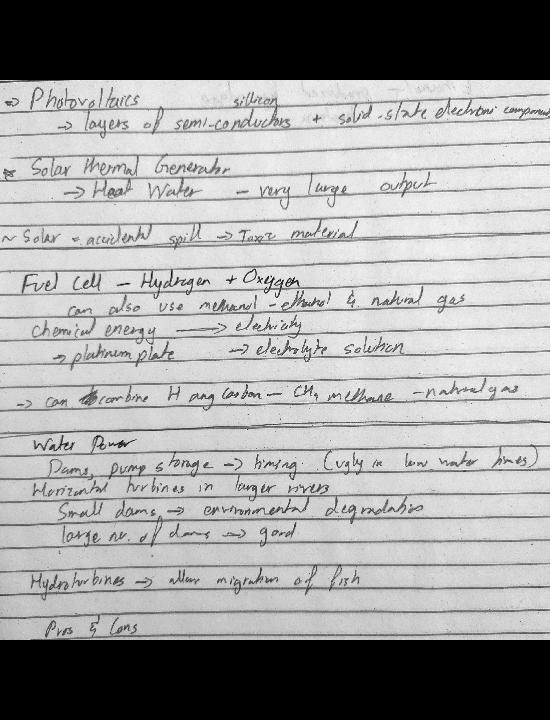 ⇒ Photovoltaics
sillicon
→ layers of semi-conductors + solid-state electronic component
* Solar thermal Generator
→ Heat Water - very large output
~ Solar - accidental spill → Toxic material
Fuel Cell - Hydrogen + Oxygen
can also use methanol - ethanol & natural gas
Chemical energy → electricity
→ platinum plate → electrolyte solution
→ can combine H ang Carbon - CH4 methane - natural gas
Water Power
Dams, pump storage → timing (ugly in low water times)
Horizontal turbines in larger rivers
Small dams → environmental degradation
large no. of dams → good
Hydroturbines → allow migration of fish
Pros & Cons